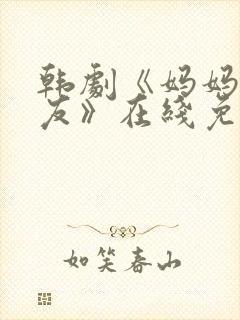 韩剧《妈妈
友》在线免
如笑春山